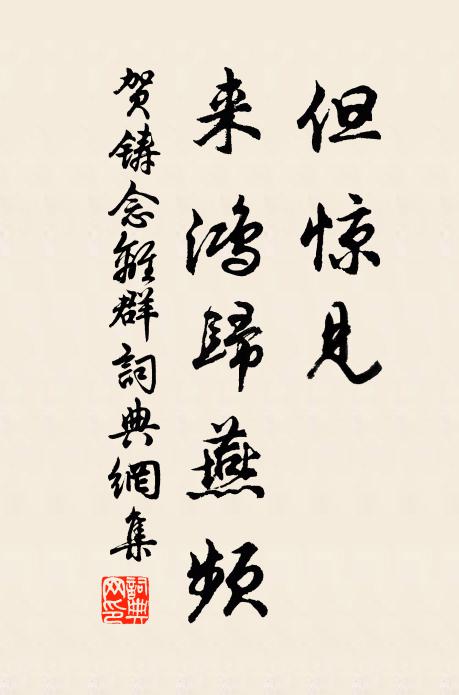 但惊见
来鸿歸燕频
贺铸念離群詞典網集
詞典网印